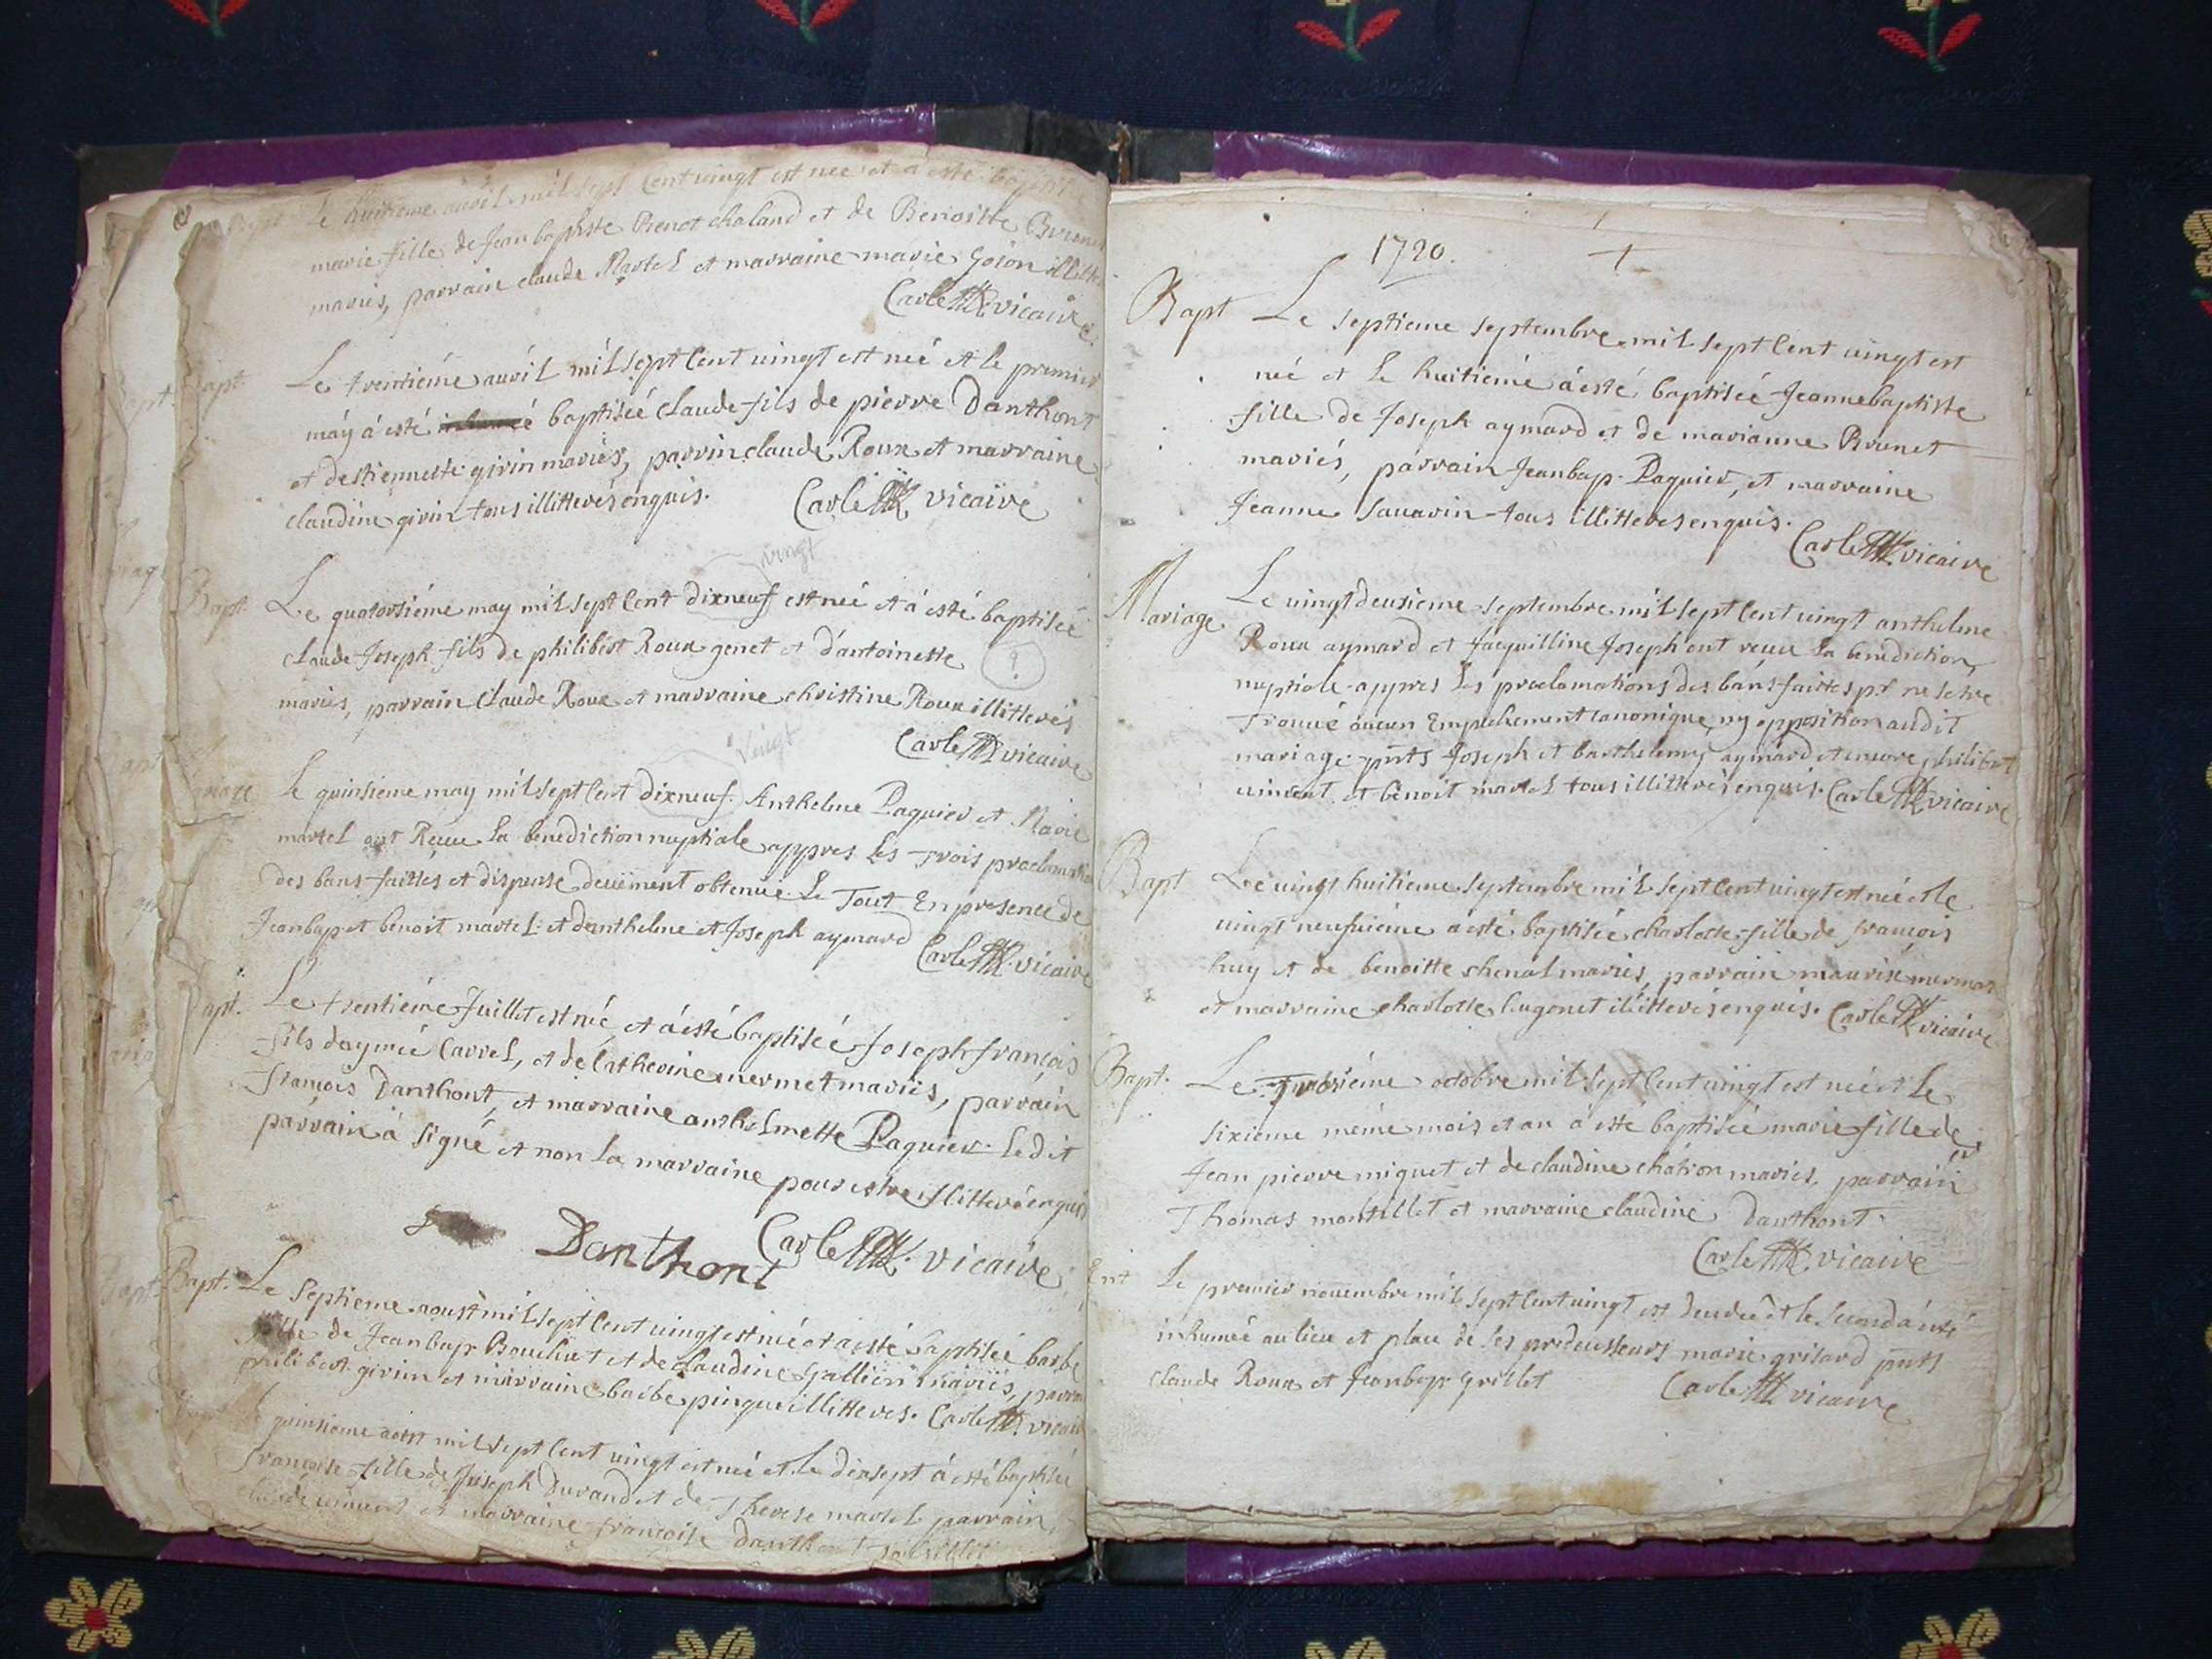 Bapt Le huitieme avril mil sept Cent vingt est née et a esté baptisée
marie fille de Jean baptiste Benot chaland et de Benoitte Brunet
mariés, parrain claude Martel et marraine marie Goion illitterés
Carle vicaire
Bapt Le trentiéme avril mil sept Cent vingt est né et le premier
máy á esté baptiséé Claude fils de pierre Danthont
et destiennette girin mariés, parrin claude Roux et marraine
claudine girin tous illitterés enquis. Carle vicaire
vingt
Bapt Le quatorsiéme may mil sept Cent dixneuf est né et á esté baptiséé
claude Joseph fils de philibert Roux genet et d'antoinette (?)
mariés, parrain Claude Roux et marraine christine Roux illitterés
Carle vicaire
vingt
Mariage Le quinsieme may mil sept Cent dixneuf. Anthelme Paquier et Marie
martel ont Reçue La benediction nuptiale appres les trois proclamation
des bans faittes et dispense deuëment obtenue. Le Tout En presence de
Jean bap et benoit martel et danthelme et Joseph aymard Carle vicaire
Bapt. Le trentiéme Juillet est né, et á esté baptiséé Joseph françois
fils daymé Carrel, et de Catherine mermet mariés, parrain
françois Danthont, et marraine anthelmette Paquier. Ledit
parrain á signé et non La marraine pour estre illitteré enquis
Danthont Carle vicaire
Bapt. Le septieme aoust mil sept Cent vingt est né et a esté baptiséé barbe
fille de Jean bap Bouchut et de claudine Gallien mariés, parrain
philibert girin et marraine barbe pingue illitteres. Carle vicaire
Bapt Le quinsieme aoust mil sept Cent vingt est né et le dixsept á esté baptisé
françoise fille de Joseph Durand et de Therese martel parrain,
claude vincent et marraine françoise Danthont
1720.
Bapt Le septieme septembre mil sept Cent vingt est
né et Le huitiéme á esté baptiséé Jeanne baptiste
fille de Joseph aymard et de marianne Brunet
mariés, parrain Jean bap. Paquier, et marraine
Jeanne Sauarin tous illitteres enquis.
Carle vicaire
Mariage Le vingtdeuxieme septembre mil sept Cent vingt anthelme
Roux aymard et Jacquilline Joseph ont receu La benediction
nuptiale appres Les proclamations des bans faittes pr ne setre
Trouué aucun Empechement Canonique, ny opposition audit
mariage pnts Joseph et barthelemy aymard et encore philibert
vincent et benoit martel tous illitterés enquis. Carle vicaire
Bapt Le vingt huitieme septembre mil sept Cent vingt est née et le
vingt neufuiéme á esté baptiséé charlotte fille de françois
huy et de benoitte chenal mariés, parrain maurise mermet
et marraine charlotte hugonet illitterés enquis. Carle vicaire
Bapt. Le octobre mil sept Cent vingt est née et Le
sixieme méme mois et an á esté baptiséé marie fille de
Jean pierre miguet et de claudine chatron mariés, parrain
Thomas montillet et marraine claudine Danthont.
Carle vicaire
Ent Le premier nouembre mil sept Cent vingt est decedée et le second á esté
inhumée au lieu et place de ses predecesseurs marie grisard pnts
claude Roux et Jean bap grillet Carle vicaire